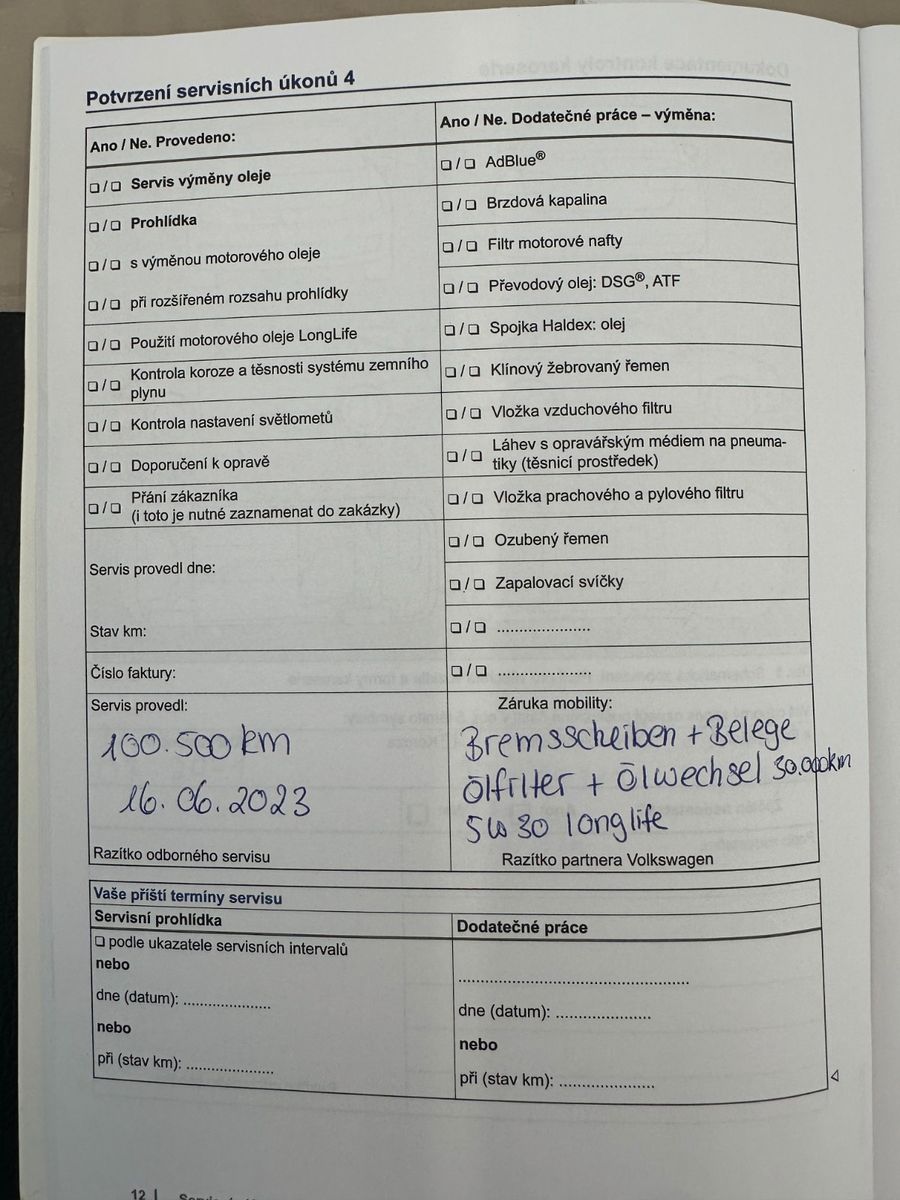 Potvrzení servisních úkonů 4
Ano / Ne. Provedeno:
❑ / ❑ Servis výměny oleje
❑ / ❑ Prohlídka
❑ / ❑ s výměnou motorového oleje
❑ / ❑ při rozšířeném rozsahu prohlídky
❑ / ❑ Použití motorového oleje LongLife
❑ / ❑ Kontrola koroze a těsnosti systému zemního
plynu
❑ / ❑ Kontrola nastavení světlometů
❑ / ❑ Doporučení k opravě
❑ / ❑ Přání zákazníka
(i toto je nutné zaznamenat do zakázky)
Servis provedl dne:
Stav km:
Číslo faktury:
Ano / Ne. Dodatečné práce – výměna:
❑ / ❑ AdBlue®
❑ / ❑ Brzdová kapalina
❑ / ❑ Filtr motorové nafty
❑ / ❑ Převodový olej: DSG®, ATF
❑ / ❑ Spojka Haldex: olej
❑ / ❑ Klínový žebrovaný řemen
❑ / ❑ Vložka vzduchového filtru
❑ / ❑ Láhev s opravářským médiem na pneuma-
tiky (těsnicí prostředek)
❑ / ❑ Vložka prachového a pylového filtru
❑ / ❑ Ozubený řemen
❑ / ❑ Zapalovací svíčky
❑ / ❑ .....................
❑ / ❑ .....................
Servis provedl:
100.500 km
16.06.2023
Razítko odborného servisu
Záruka mobility:
Bremsscheiben + Belege
Ölfilter + Ölwechsel 30.000km
5w30 longlife
Razítko partnera Volkswagen
Vaše příští termíny servisu
Servisní prohlídka
❑ podle ukazatele servisních intervalů
nebo
dne (datum): ....................
nebo
při (stav km): ....................
Dodatečné práce
.....................................................
dne (datum): ......................
nebo
při (stav km): ......................
12